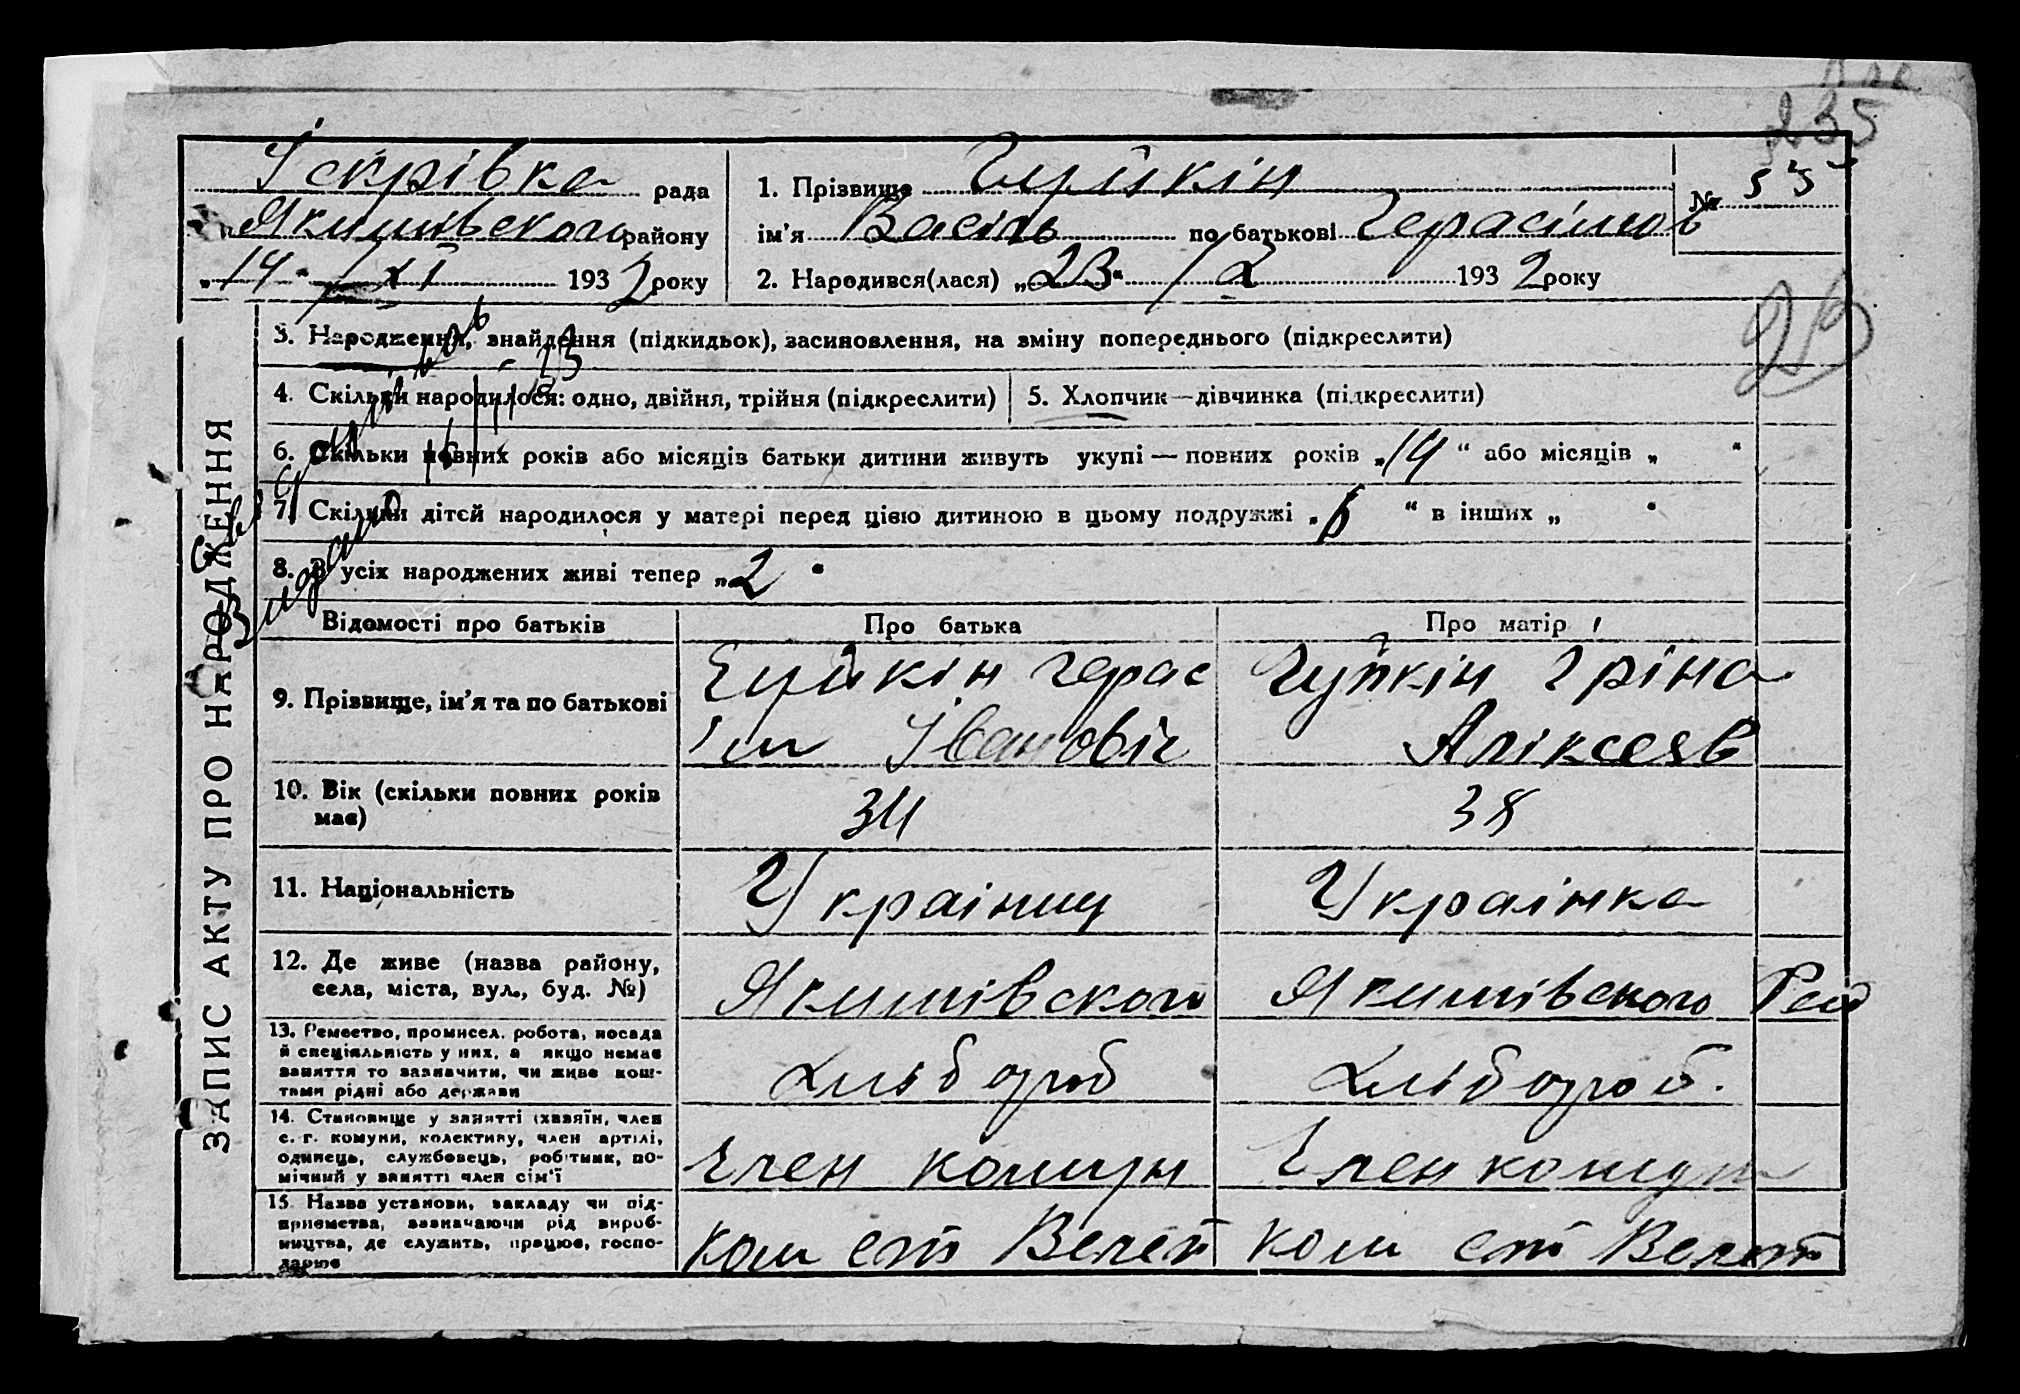 235
Іскрівка рада
Якимівського району
„14“ XI 1932 року
1. Прізвище
№ 55
ім'я Василь по батькові Герасімов
2. Народився(лася) „23“ /2 1932 року
ЗАПИС АКТУ ПРО НАРОДЖЕННЯ
3. Народження, знайдення (підкидьок), засиновлення, на зміну попереднього (підкреслити)
4. Скільки народилося: одно, двійня, трійня (підкреслити)
5. Хлопчик—дівчинка (підкреслити)
6. Скільки повних років або місяців батьки дитини живуть укупі — повних років „14“ або місяців „ “
7. Скільки дітей народилося у матері перед цією дитиною в цьому подружжі „6“ в інших „ “
8. З усіх народжених живі тепер „2“
Відомості про батьків
Про батька
Про матір
9. Прізвище, ім'я та по батькові
Герас
ім Івановіч
Чупкін Іріна
Аліксеяв
10. Вік (скільки повних років
має)
34
38
11. Національність
Українц
Українка
12. Де живе (назва району,
села, міста, вул., буд. №)
Якимівского
Якимівского
13. Ремество, промисел, робота, посада
й спеціяльність у них, а якщо немає
заняття то зазначити, чи живе кош-
тами рідні або держави
Хлібороб
Хлібороб.
14. Становище у занятті (хазяїн, член
с.-г. комуни, колективу, член артілі,
одинець, службовець, робітник, по-
мічний у занятті член сім'ї
Член комун
Член комун
15. Назва установи, закладу чи під-
приємства, зазначаючи рід вироб-
ництва, де служить, працює, госпо-
дарює
Ком ет Велет
Ком ет Велет